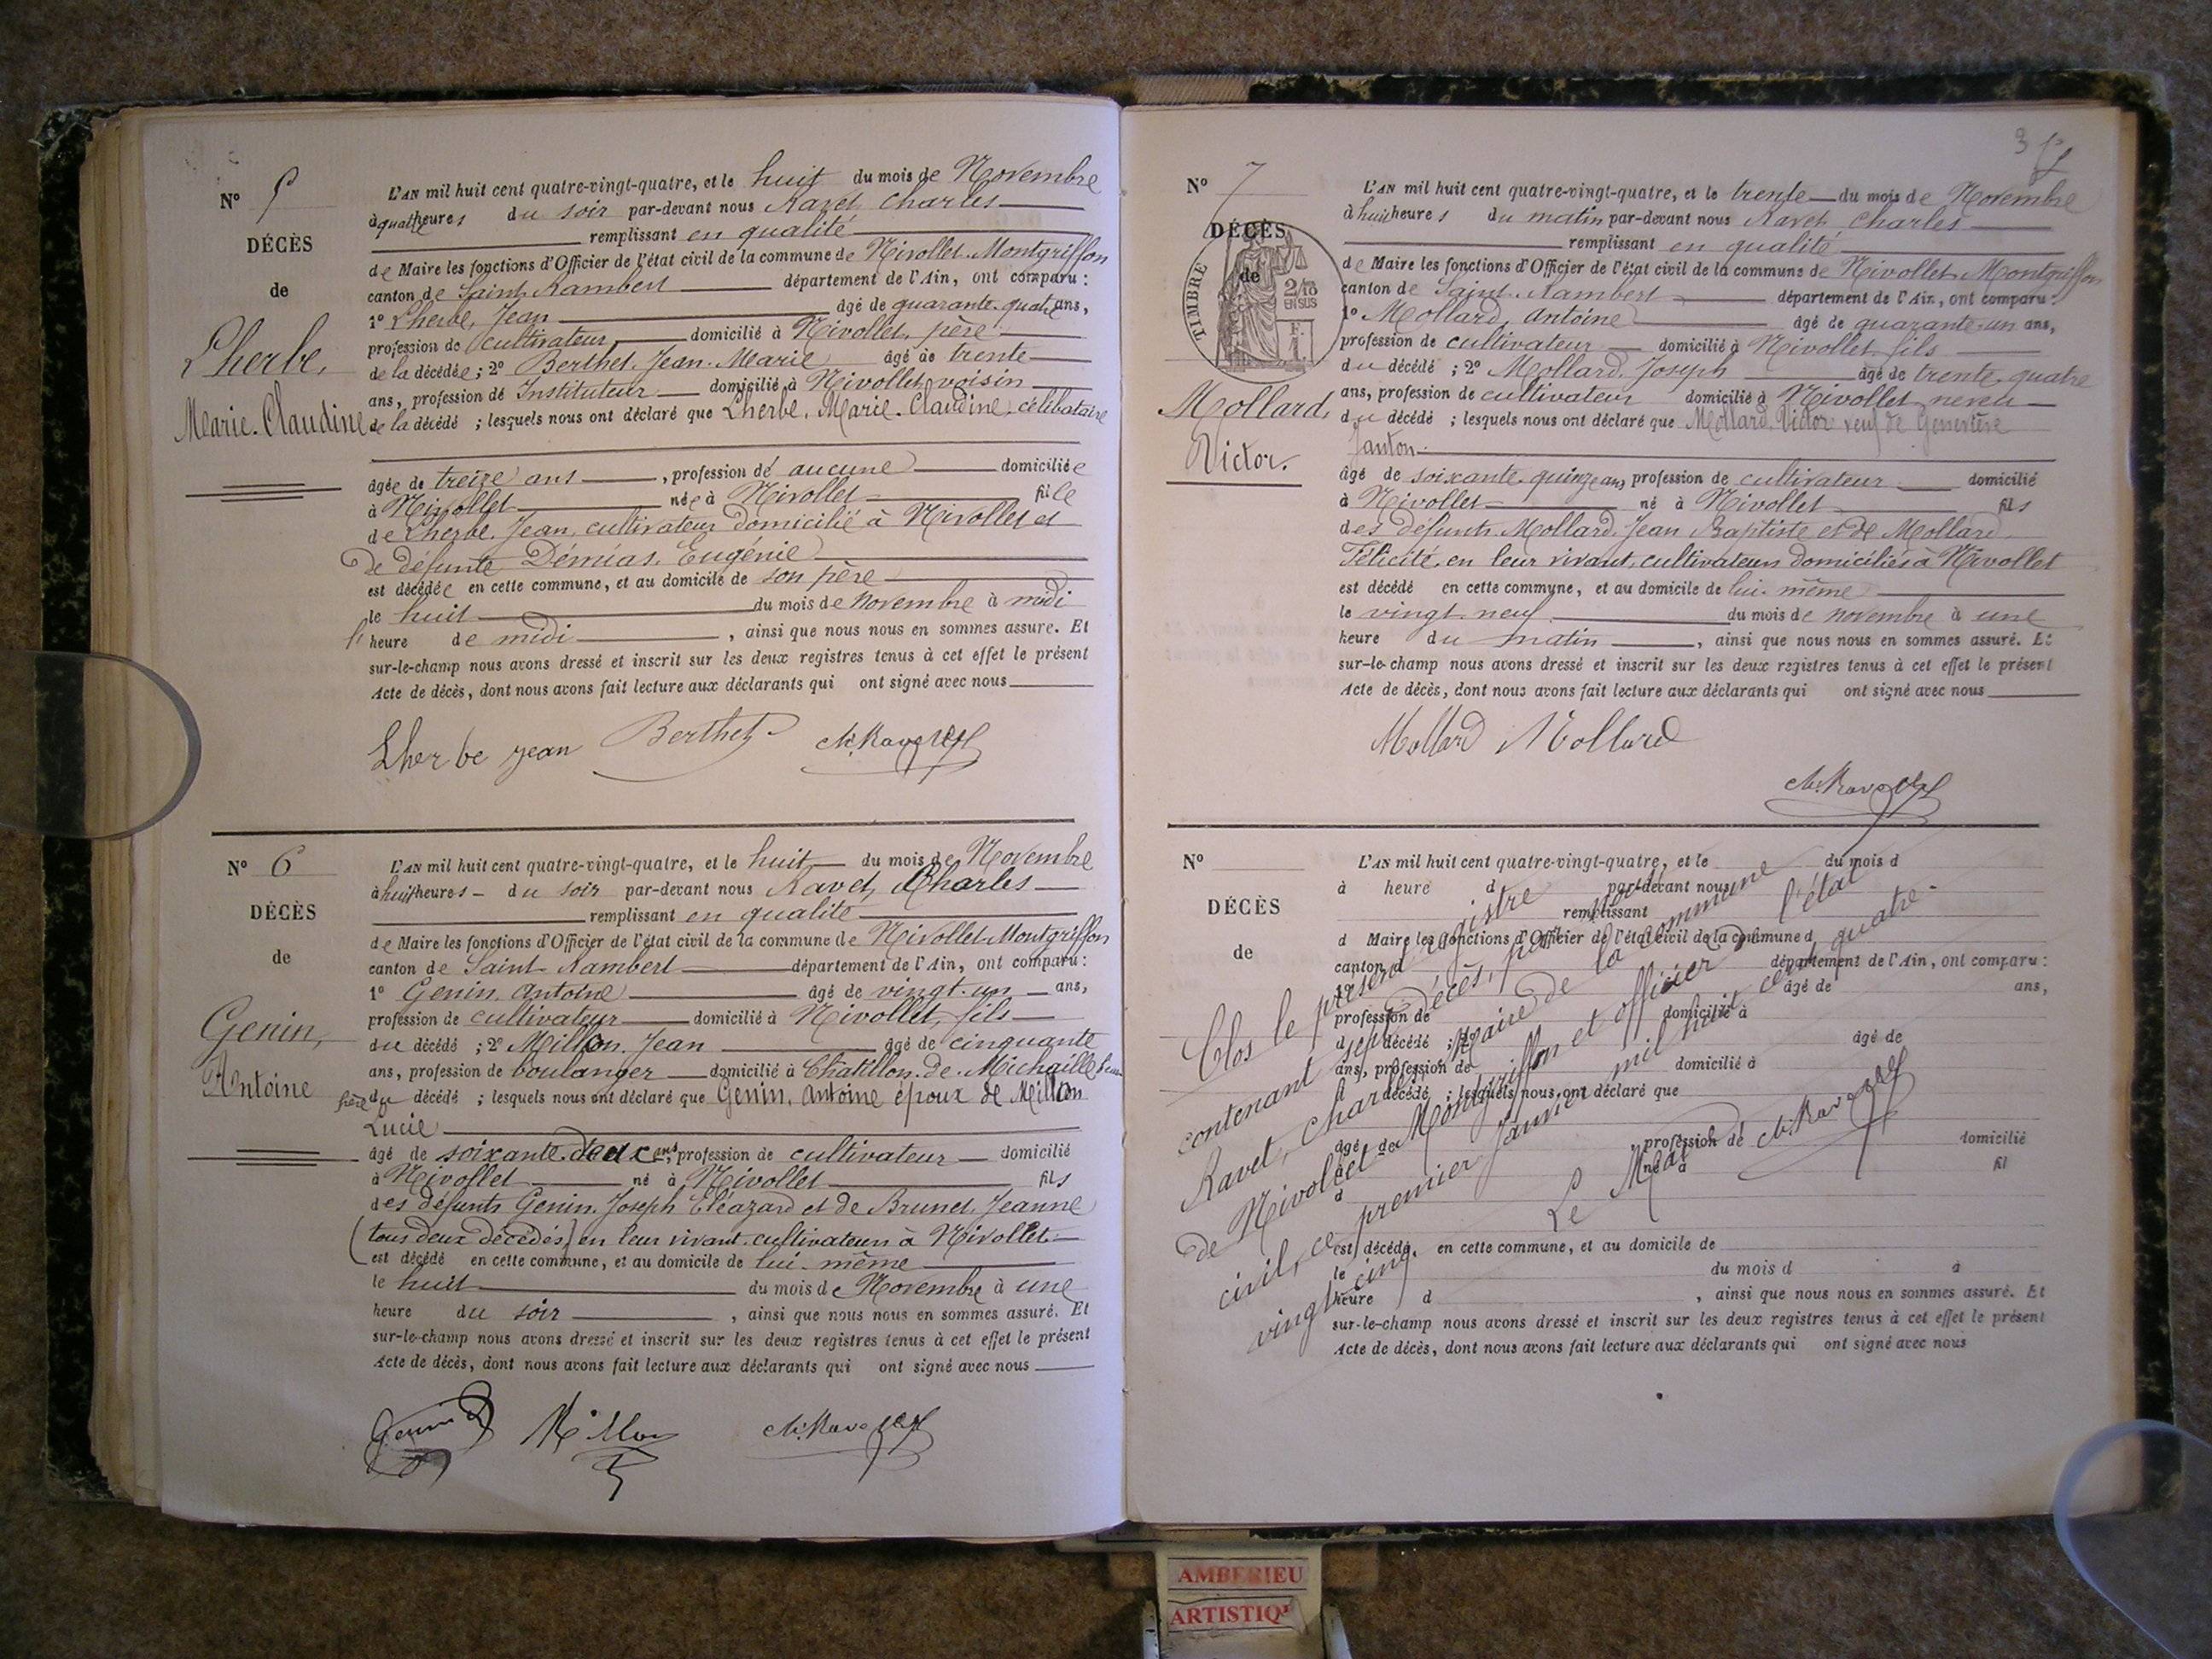 N° 5
DÉCÈS
de
Lherbe,
Marie-Claudine
L'AN mil huit cent quatre-vingt-quatre, et le huit du mois de Novembre
à quatre heures du soir par-devant nous Ravet Charles
remplissant en qualité
de Maire les fonctions d'Officier de l'état civil de la commune de Nivollet-Montgriffon
canton de Saint-Rambert département de l'Ain, ont comparu :
1° Lherbe, Jean âgé de quarante-quatre ans,
profession de cultivateur domicilié à Nivollet, père
de la décédée ; 2° Berthet, Jean-Marie âgé de trente
ans, profession de Instituteur domicilié à Nivollet voisin
de la décédé ; lesquels nous ont déclaré que Lherbe, Marie-Claudine, célibataire
âgée de treize ans , profession de aucune domiciliée
à Nivollet née à Nivollet fille
de Lherbe, Jean, cultivateur domicilié à Nivollet et
de défunte Déméas, Eugénie
est décédée en cette commune, et au domicile de son père
le huit du mois de novembre à midi
heure de midi , ainsi que nous nous en sommes assuré. Et
sur-le-champ nous avons dressé et inscrit sur les deux registres tenus à cet effet le présent
Acte de décès, dont nous avons fait lecture aux déclarants qui ont signé avec nous
Lherbe jean Berthet Ch. Ravet
N° 6
DÉCÈS
de
Genin,
Antoine
L'AN mil huit cent quatre-vingt-quatre, et le huit du mois de Novembre
à huit heures du soir par-devant nous Ravet, Charles
remplissant en qualité
de Maire les fonctions d'Officier de l'état civil de la commune de Nivollet-Montgriffon
canton de Saint-Rambert département de l'Ain, ont comparu :
1° Genin, Antoine âgé de vingt-un ans,
profession de cultivateur domicilié à Nivollet, fils
du décédé ; 2° Millon, Jean âgé de cinquante
ans, profession de boulanger domicilié à Chatillon-de-Michaille beau
frère du décédé ; lesquels nous ont déclaré que Genin, Antoine époux de Millon
Lucie
âgé de soixante-deux ans, profession de cultivateur domicilié
à Nivollet né à Nivollet fils
des défunts Genin, Joseph Eléazard et de Brunet, Jeanne
(tous deux décédés) en leur vivant cultivateurs à Nivollet
est décédé en cette commune, et au domicile de lui-même
le huit du mois de Novembre à une
heure du soir , ainsi que nous nous en sommes assuré. Et
sur-le-champ nous avons dressé et inscrit sur les deux registres tenus à cet effet le présent
Acte de décès, dont nous avons fait lecture aux déclarants qui ont signé avec nous
Genin Millon Ch. Ravet
3
N° 7
DÉCÈS
de
TIMBRE
2/10
EN SUS
Mollard,
Victor.
L'AN mil huit cent quatre-vingt-quatre, et le trente du mois de Novembre
à huit heures du matin par-devant nous Ravet, Charles
remplissant en qualité
de Maire les fonctions d'Officier de l'état civil de la commune de Nivollet-Montgriffon
canton de Saint-Rambert département de l'Ain, ont comparu :
1° Mollard, Antoine âgé de quarante-un ans,
profession de cultivateur domicilié à Nivollet fils
du décédé ; 2° Mollard, Joseph âgé de trente-quatre
ans, profession de cultivateur domicilié à Nivollet neveu
du décédé ; lesquels nous ont déclaré que Mollard, Victor veuf de Geneviève
Janton
âgé de soixante-quinze ans, profession de cultivateur domicilié
à Nivollet né à Nivollet fils
des défunts Mollard, Jean Baptiste et de Mollard
Félicité, en leur vivant, cultivateurs domiciliés à Nivollet
est décédé en cette commune, et au domicile de lui-même
le vingt-neuf du mois de novembre à une
heure du matin , ainsi que nous nous en sommes assuré. Et
sur-le-champ nous avons dressé et inscrit sur les deux registres tenus à cet effet le présent
Acte de décès, dont nous avons fait lecture aux déclarants qui ont signé avec nous
Mollard Mollard
Ch. Ravet
N°
DÉCÈS
de
L'AN mil huit cent quatre-vingt-quatre, et le du mois d
à heure d par-devant nous
remplissant
d Maire les fonctions d'Officier de l'état civil de la commune d
canton d département de l'Ain, ont comparu :
1° âgé de ans,
profession de domicilié à
d décédé ; 2° âgé de
ans, profession de domicilié à
d décédé ; lesquels nous ont déclaré que
âgé de , profession de domicilié
à né à fil
d
est décédé en cette commune, et au domicile de
le du mois d à
heure d , ainsi que nous nous en sommes assuré. Et
sur-le-champ nous avons dressé et inscrit sur les deux registres tenus à cet effet le présent
Acte de décès, dont nous avons fait lecture aux déclarants qui ont signé avec nous
Clos le présent registre
contenant sept décès, par nous
Ravet, Charles, Maire de la commune
de Nivollet-Montgriffon et officier de l'état
civil, ce premier Janvier mil huit cent quatre-
vingt-cinq
Le Maire
Ch. Ravet
AMBERIEU
ARTISTIQ